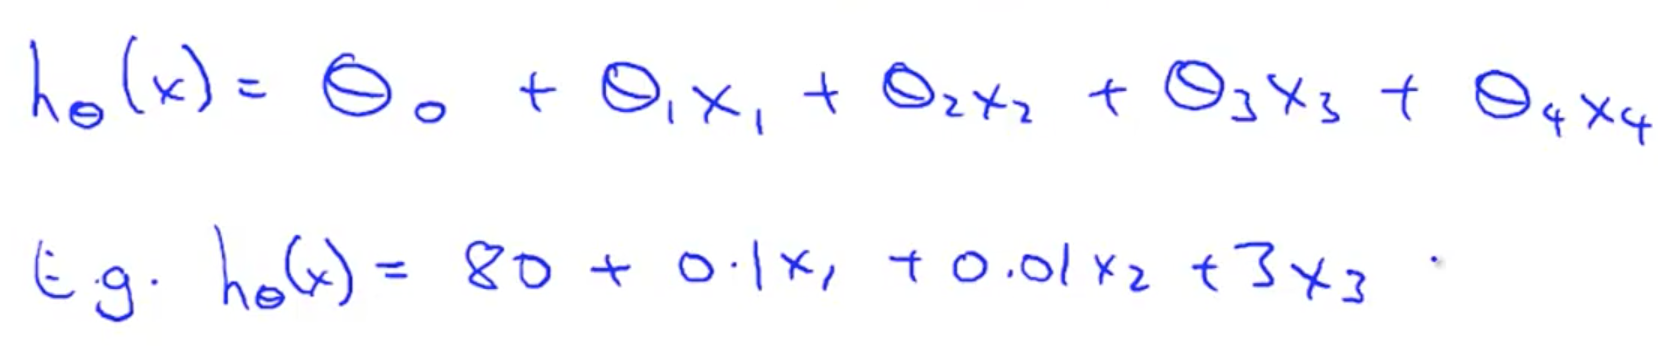 hθ(x) = θ₀ + θ₁x₁ + θ₂x₂ + θ₃x₃ + θ₄x₄
E.g. hθ(x) = 80 + 0.1x₁ + 0.01x₂ + 3x₃